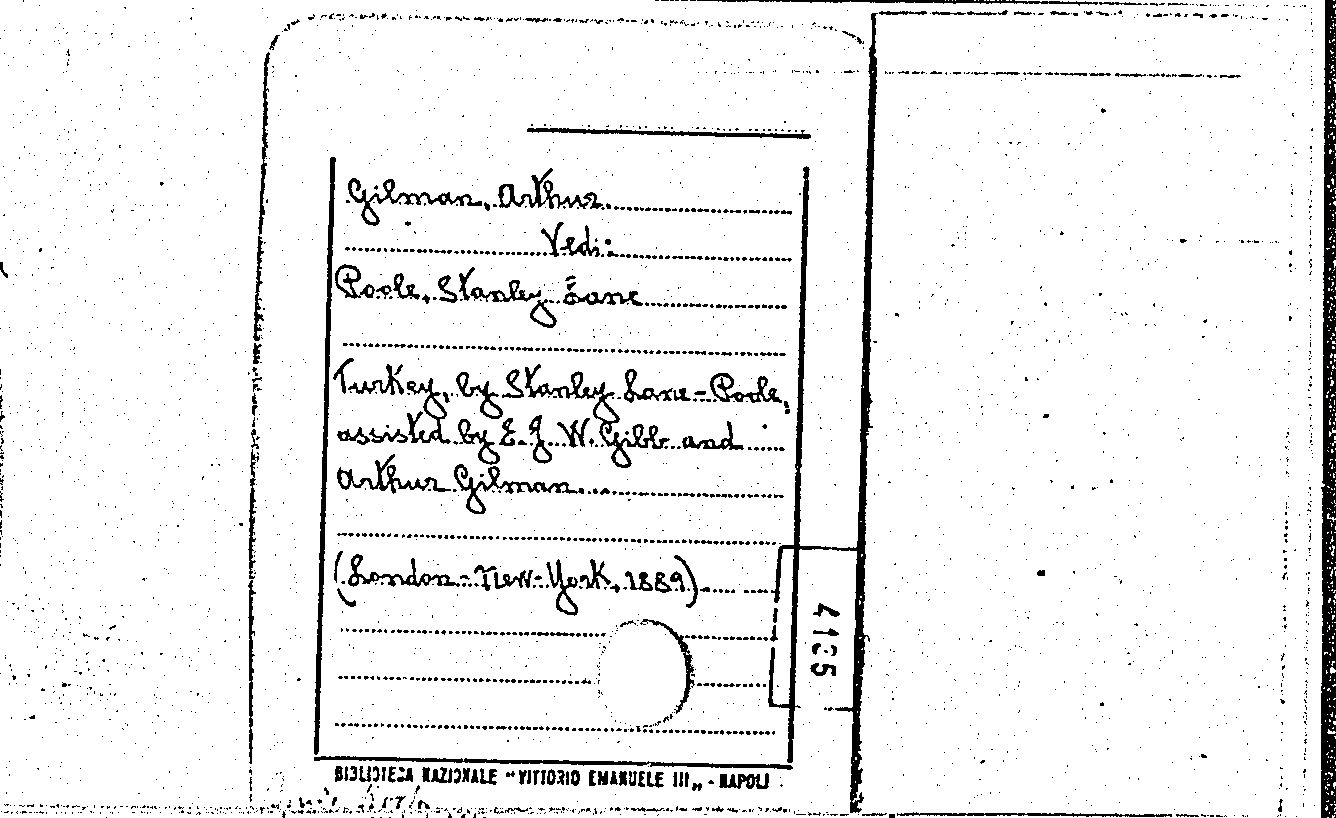 Gilman, Arthur.
Vedi:
Poole, Stanley Lane
Turkey, by Stanley Lane-Poole,
assisted by E. J. W. Gibb and
Arthur Gilman...
(London-New-York, 1889)
4135
BIBLIOTECA NAZIONALE "VITTORIO EMANUELE III„ - NAPOLI